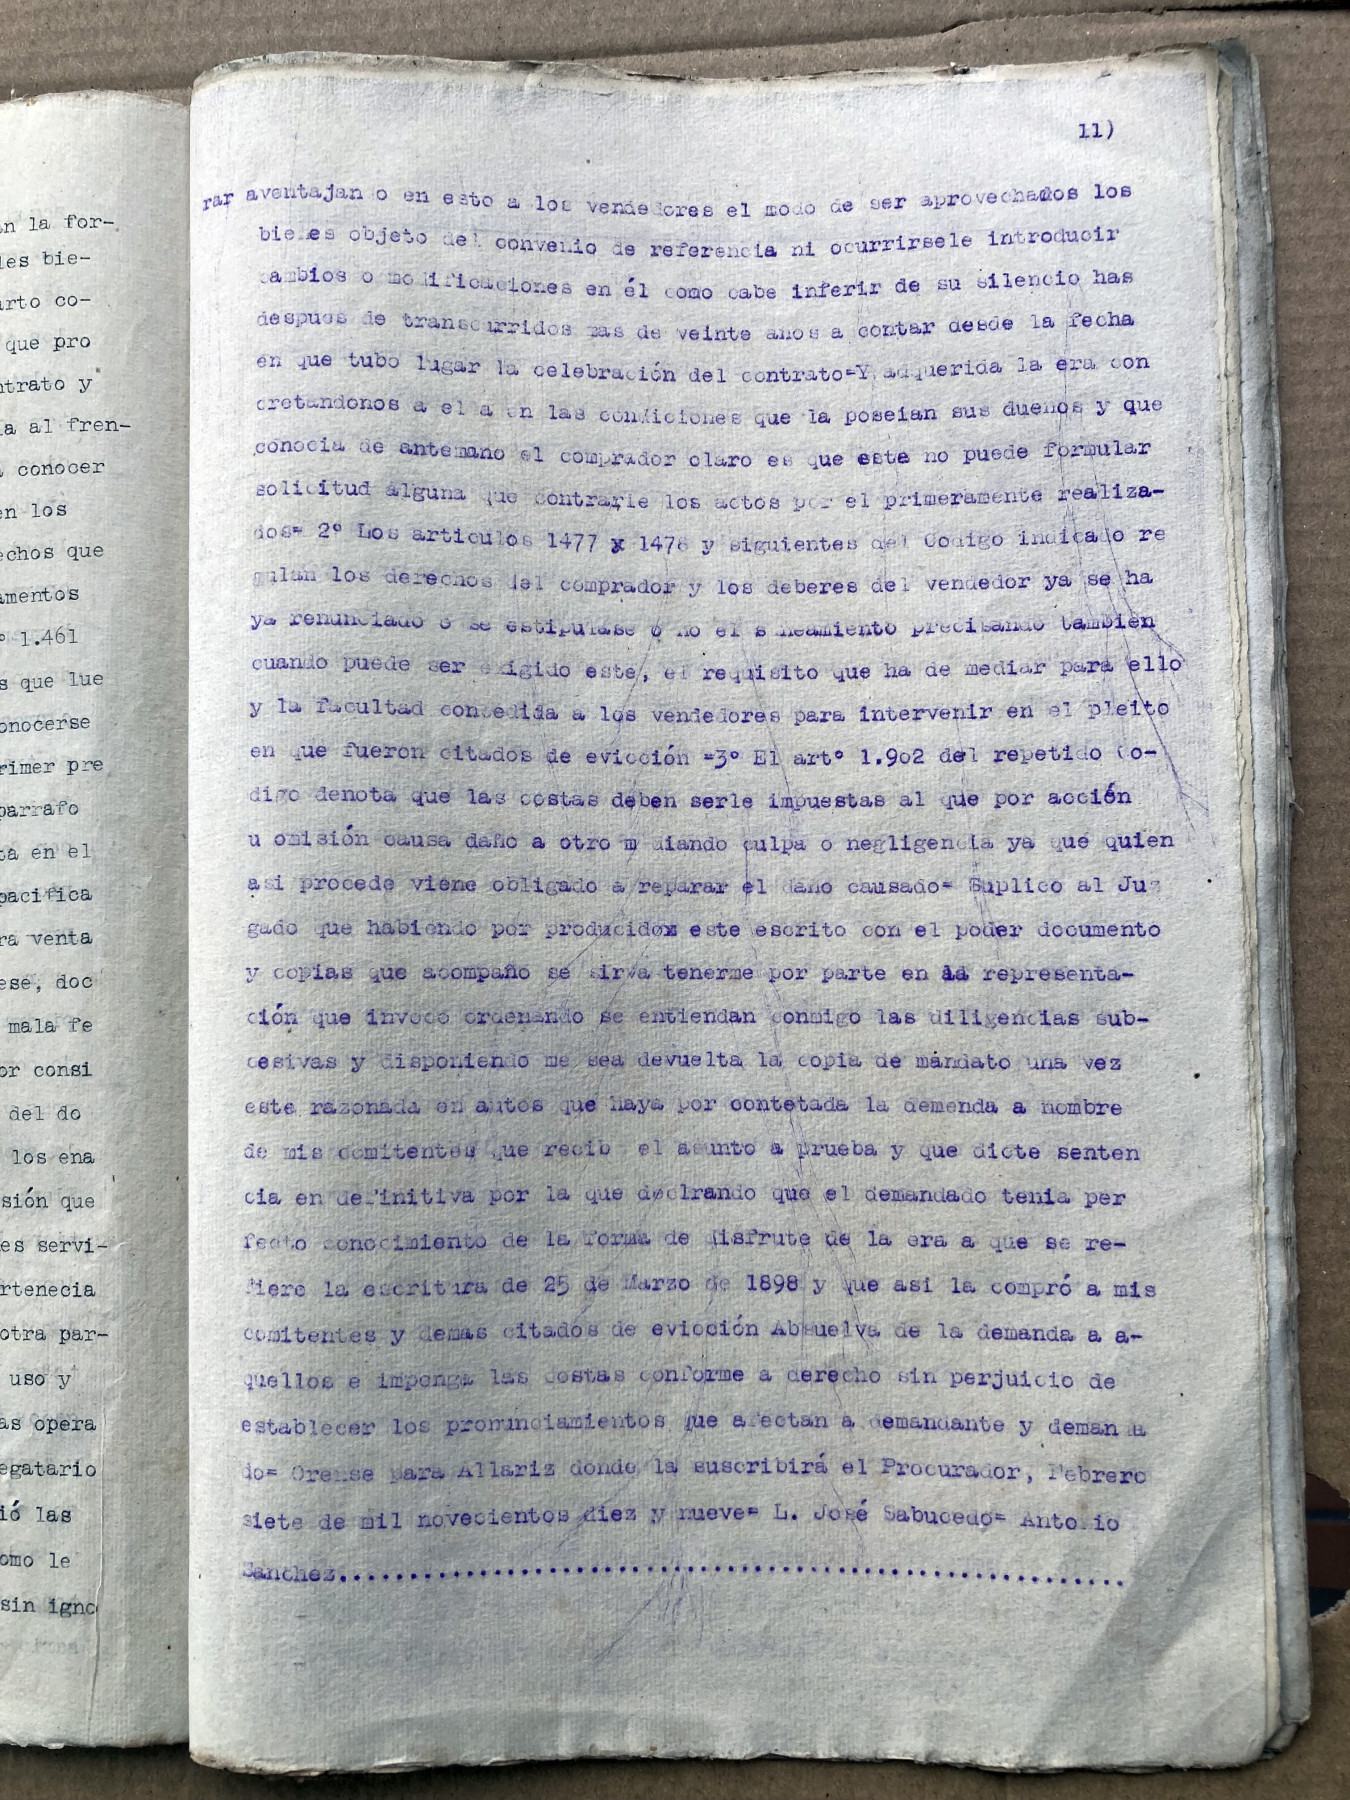 an la for-
les bie-
arto co-
que pro
ntrato y
ia al fren-
a conocer
en los
echos que
amentos
º 1.461
s que lue
onocerse
rimer pre
parrafo
ta en el
pacifica
ra venta
ese, doc
mala fe
or consi
del do
los ena
sión que
es servi-
rtenecia
otra par-
uso y
as opera
egatario
ió las
omo le
sin igno
11)
rar aventajan o en esto a los vendedores el modo de ser aprovechados los
bienes objeto del convenio de referencia ni ocurrirsele introducir
cambios o modificaciones en él como cabe inferir de su silencio has
despues de transcurridos mas de veinte años a contar desde la fecha
en que tubo lugar la celebración del contrato=Y adquerida la era con
cretandonos a el a en las condiciones que la poseian sus dueños y que
conocia de antemano el comprador claro es que este no puede formular
solicitud alguna que contrarie los actos por el primeramente realiza-
dos= 2º Los articulos 1477 x 1478 y siguientes del Codigo indicado re
gulan los derechos del comprador y los deberes del vendedor ya se ha
ya renunciado o se estipulase o no el saneamiento precisando tambien
cuando puede ser exigido este, el requisito que ha de mediar para ello
y la facultad concedida a los vendedores para intervenir en el pleito
en que fueron citados de evicción =3º El artº 1.902 del repetido Co-
digo denota que las costas deben serle impuestas al que por acción
u omisión causa daño a otro mediando culpa o negligencia ya que quien
asi procede viene obligado a reparar el daño causado= Suplico al Juz
gado que habiendo por producidox este escrito con el poder documento
y copias que acompaño se sirva tenerme por parte en la representa-
ción que invoco ordenando se entiendan conmigo las diligencias sub-
cesivas y disponiendo me sea devuelta la copia de mandato una vez
este razonada en autos que haya por contetada la demenda a nombre
de mis comitentes que recib el asunto a prueba y que dicte senten
cia en definitiva por la que declrando que el demandado tenia per
fecto conocimiento de la forma de disfrute de la era a que se re-
fiere la escritura de 25 de Marzo de 1898 y que asi la compró a mis
comitentes y demas citados de evicción Absuelva de la demanda a a-
quellos e imponga las costas conforme a derecho sin perjuicio de
establecer los pronunciamientos que afectan a demandante y demanda
do= Orense para Allariz donde la suscribirá el Procurador, Febrero
siete de mil novecientos diez y nueve= L. José Sabucedo= Antonio
Sanchez..........................................................